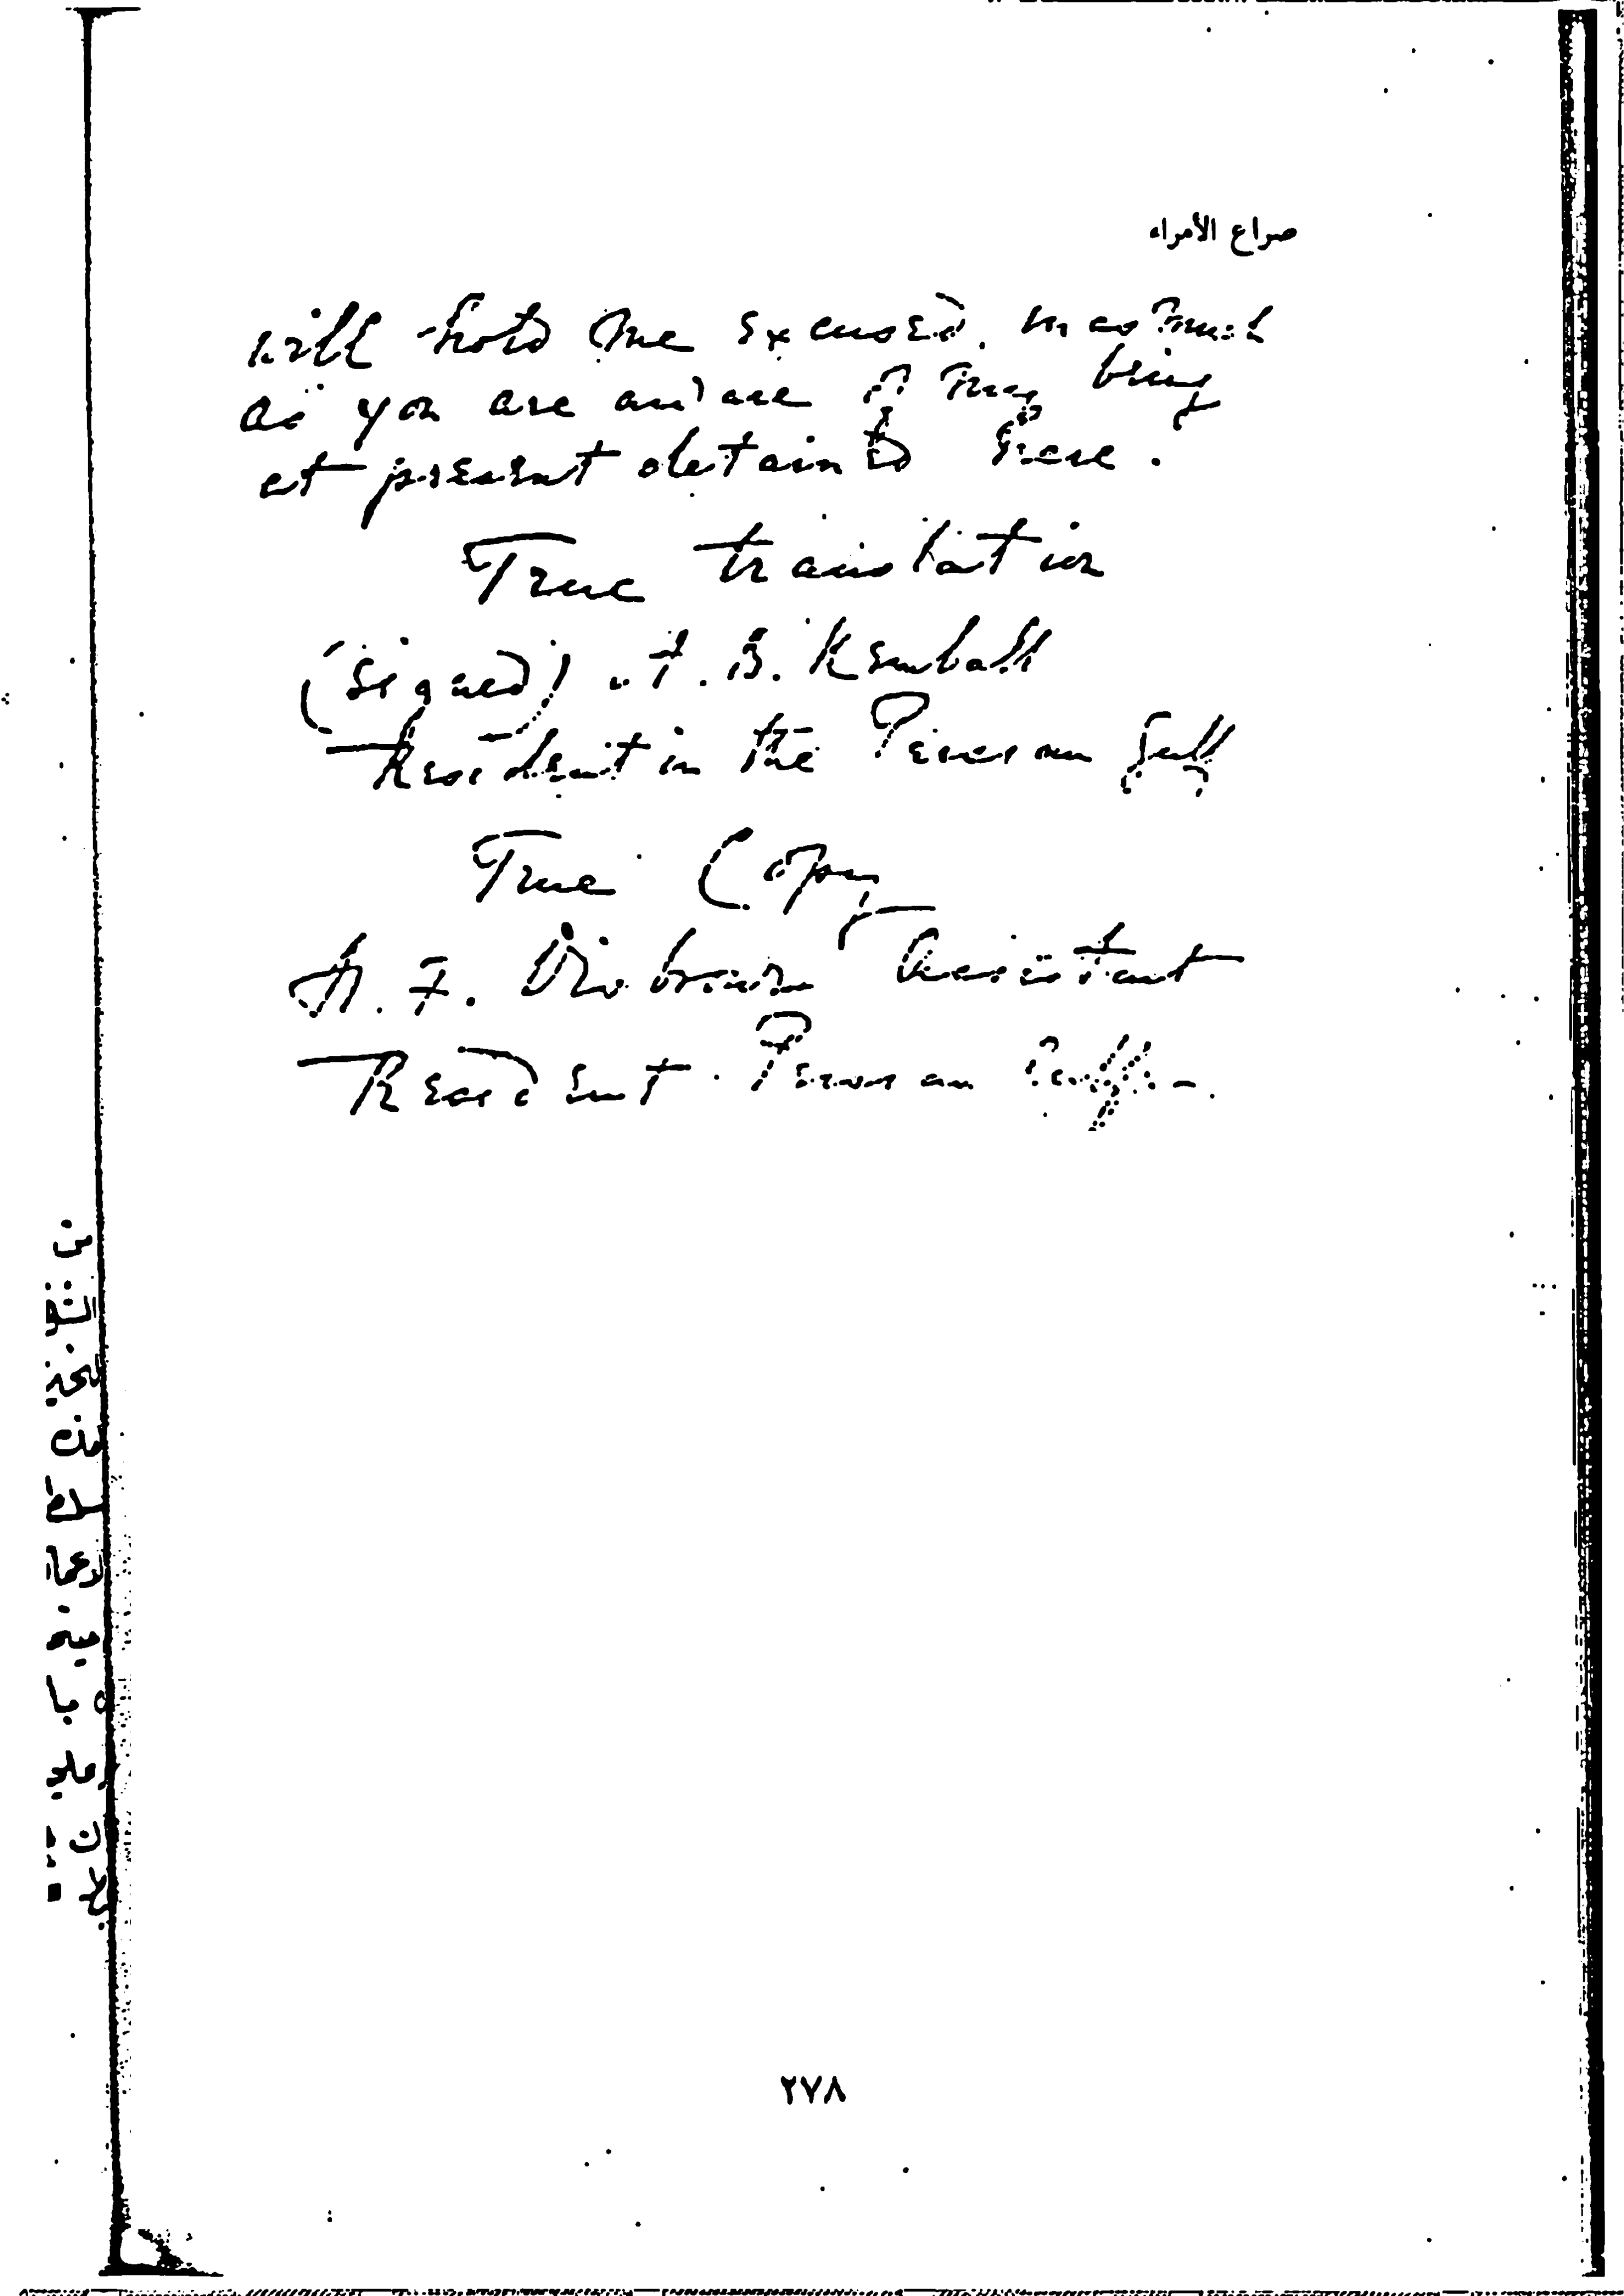 صراع الأمراء
will hold me excused, inasmuch
as you are aware of my being
at present detained here.
True translation
(signed) A. B. Kemball
Resident in the Persian Gulf
True Copy
H. F. Disbrowe Assistant
Resident Persian Gulf.
٢٧٨